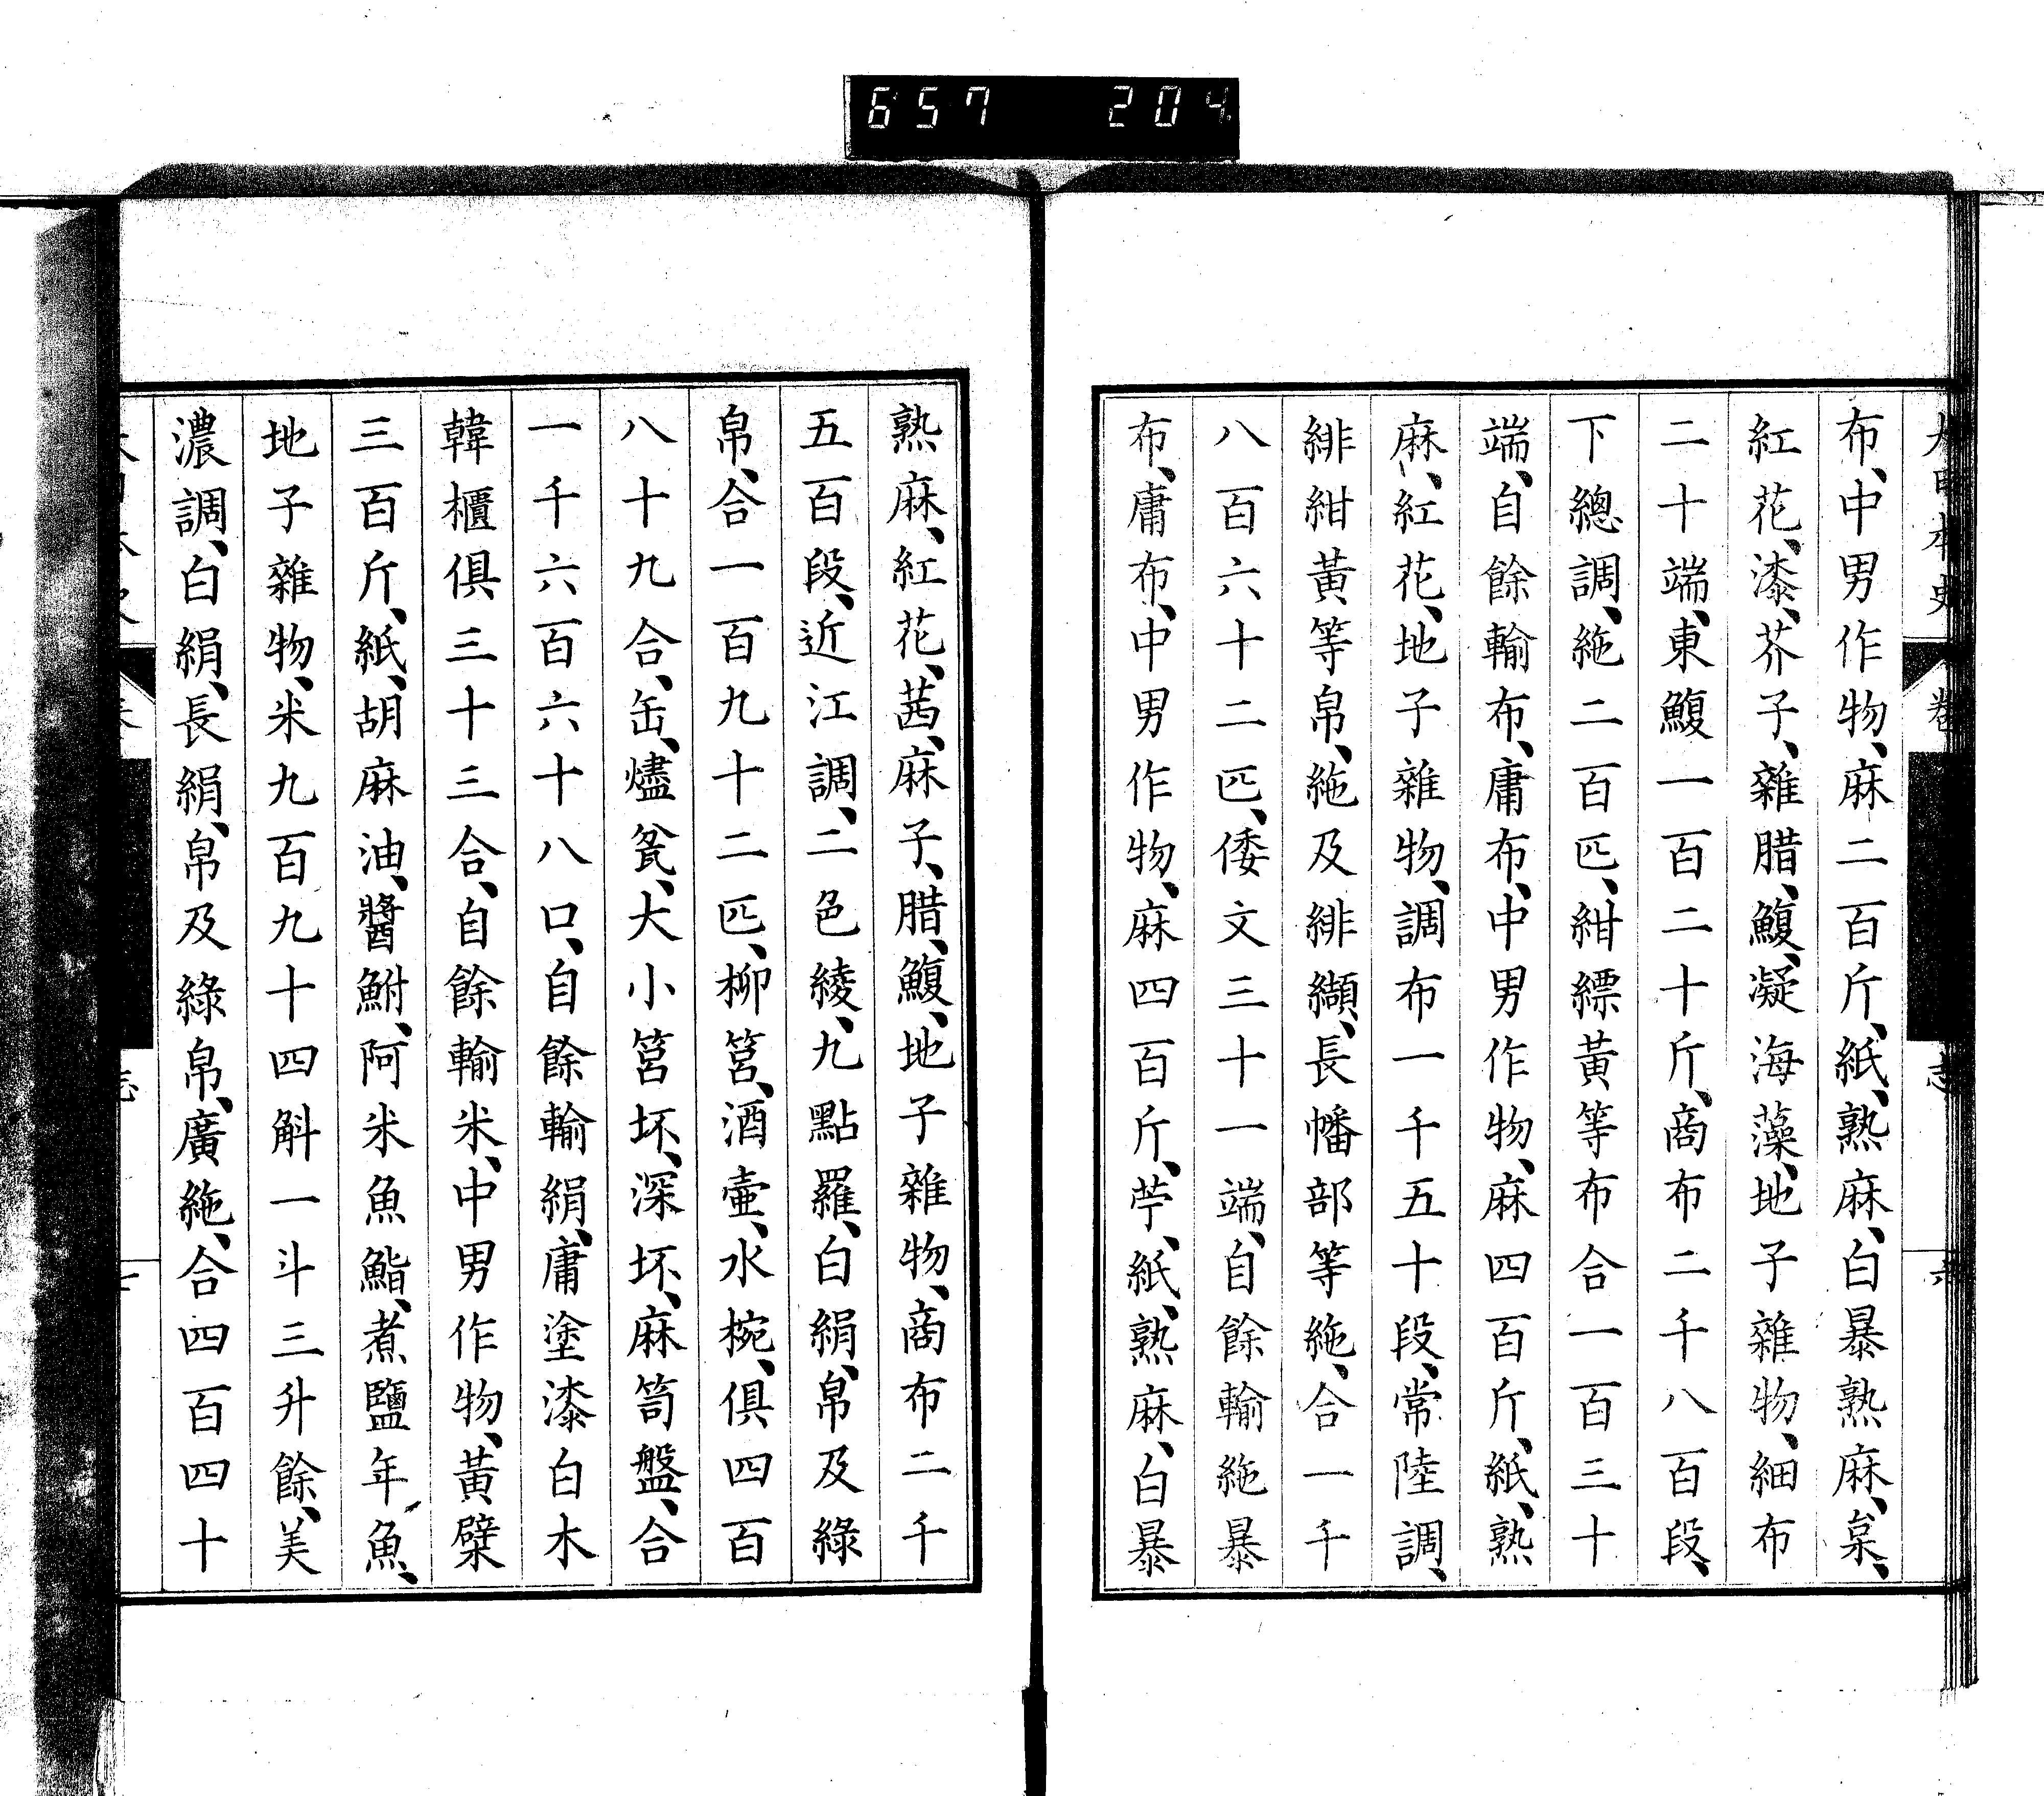 657 204
布、中男作物、麻二百斤、紙、熟麻、白暴熟麻、枲、
紅花、漆、芥子、雜腊、鰒、凝海藻、地子雜物、細布
二十端、東鰒一百二十斤、商布二千八百段、
下總調、絁二百匹、紺縹黃等布合一百三十
端、自餘輸布、庸布、中男作物、麻四百斤、紙、熟
麻、紅花、地子雜物、調布一千五十段、常陸調、
緋紺黃等帛、絁及緋纈、長幡部等絁、合一千
八百六十二匹、倭文三十一端、自餘輸絁暴
布、庸布、中男作物、麻四百斤、苧、紙、熟麻、白暴
熟麻、紅花、茜、麻子、腊、鰒、地子雜物、商布二千
五百段、近江調、二色綾、九點羅、白絹、帛及綠
帛、合一百九十二匹、柳筥、酒壷、水椀、俱四百
八十九合、缶、燼瓮、大小筥坏、深坏、麻笥盤、合
一千六百六十八口、自餘輸絹、庸塗漆白木
韓櫃俱三十三合、自餘輸米、中男作物、黃檗
三百斤、紙、胡麻油、醬鮒、阿米魚鮨、煮鹽年魚、
地子雜物、米九百九十四斛一斗三升餘、美
濃調、白絹、長絹、帛及綠帛、廣絁、合四百四十